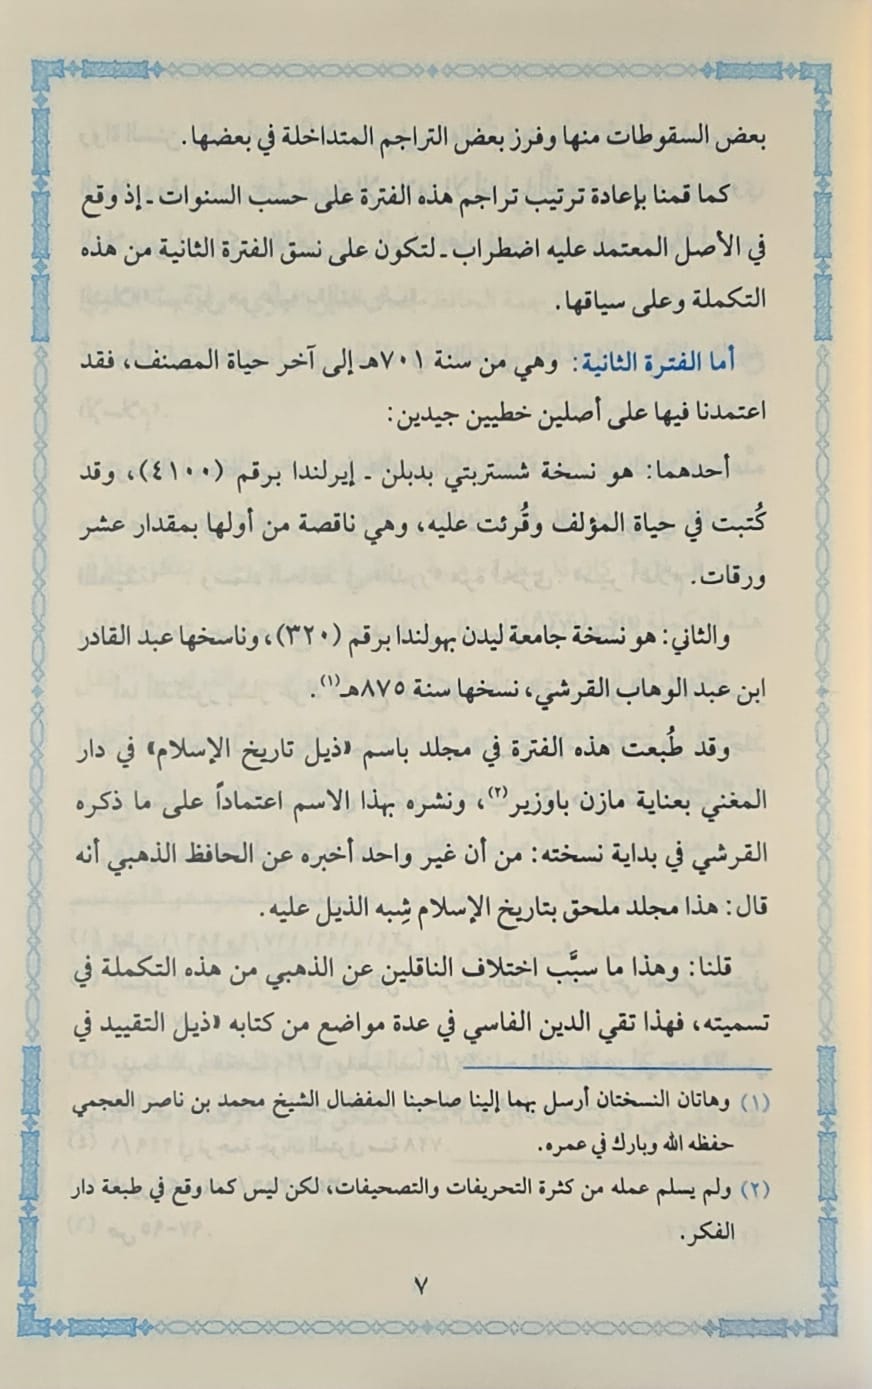 بعض السقوطات منها وفرز بعض التراجم المتداخلة في بعضها.
كما قمنا بإعادة ترتيب تراجم هذه الفترة على حسب السنوات ـ إذ وقع
في الأصل المعتمد عليه اضطراب ـ لتكون على نسق الفترة الثانية من هذه
التكملة وعلى سياقها.
أما الفترة الثانية: وهي من سنة ٧٠١هـ إلى آخر حياة المصنف، فقد
اعتمدنا فيها على أصلين خطيين جيدين:
أحدهما: هو نسخة شستربتي بدبلن ـ إيرلندا برقم (٤١٠٠)، وقد
كُتبت في حياة المؤلف وقُرئت عليه، وهي ناقصة من أولها بمقدار عشر
ورقات.
والثاني: هو نسخة جامعة ليدن بهولندا برقم (٣٢٠)، وناسخها عبد القادر
ابن عبد الوهاب القرشي، نسخها سنة ٨٧٥هـ(١).
وقد طُبعت هذه الفترة في مجلد باسم «ذيل تاريخ الإسلام» في دار
المغني بعناية مازن باوزير(٢)، ونشره بهذا الاسم اعتماداً على ما ذكره
القرشي في بداية نسخته: من أن غير واحد أخبره عن الحافظ الذهبي أنه
قال: هذا مجلد ملحق بتاريخ الإسلام شِبه الذيل عليه.
قلنا: وهذا ما سبَّب اختلاف الناقلين عن الذهبي من هذه التكملة في
تسميته، فهذا تقي الدين الفاسي في عدة مواضع من كتابه «ذيل التقييد في
(١) وهاتان النسختان أرسل بهما إلينا صاحبنا المفضال الشيخ محمد بن ناصر العجمي
حفظه الله وبارك في عمره.
(٢) ولم يسلم عمله من كثرة التحريفات والتصحيفات، لكن ليس كما وقع في طبعة دار
الفكر.
٧